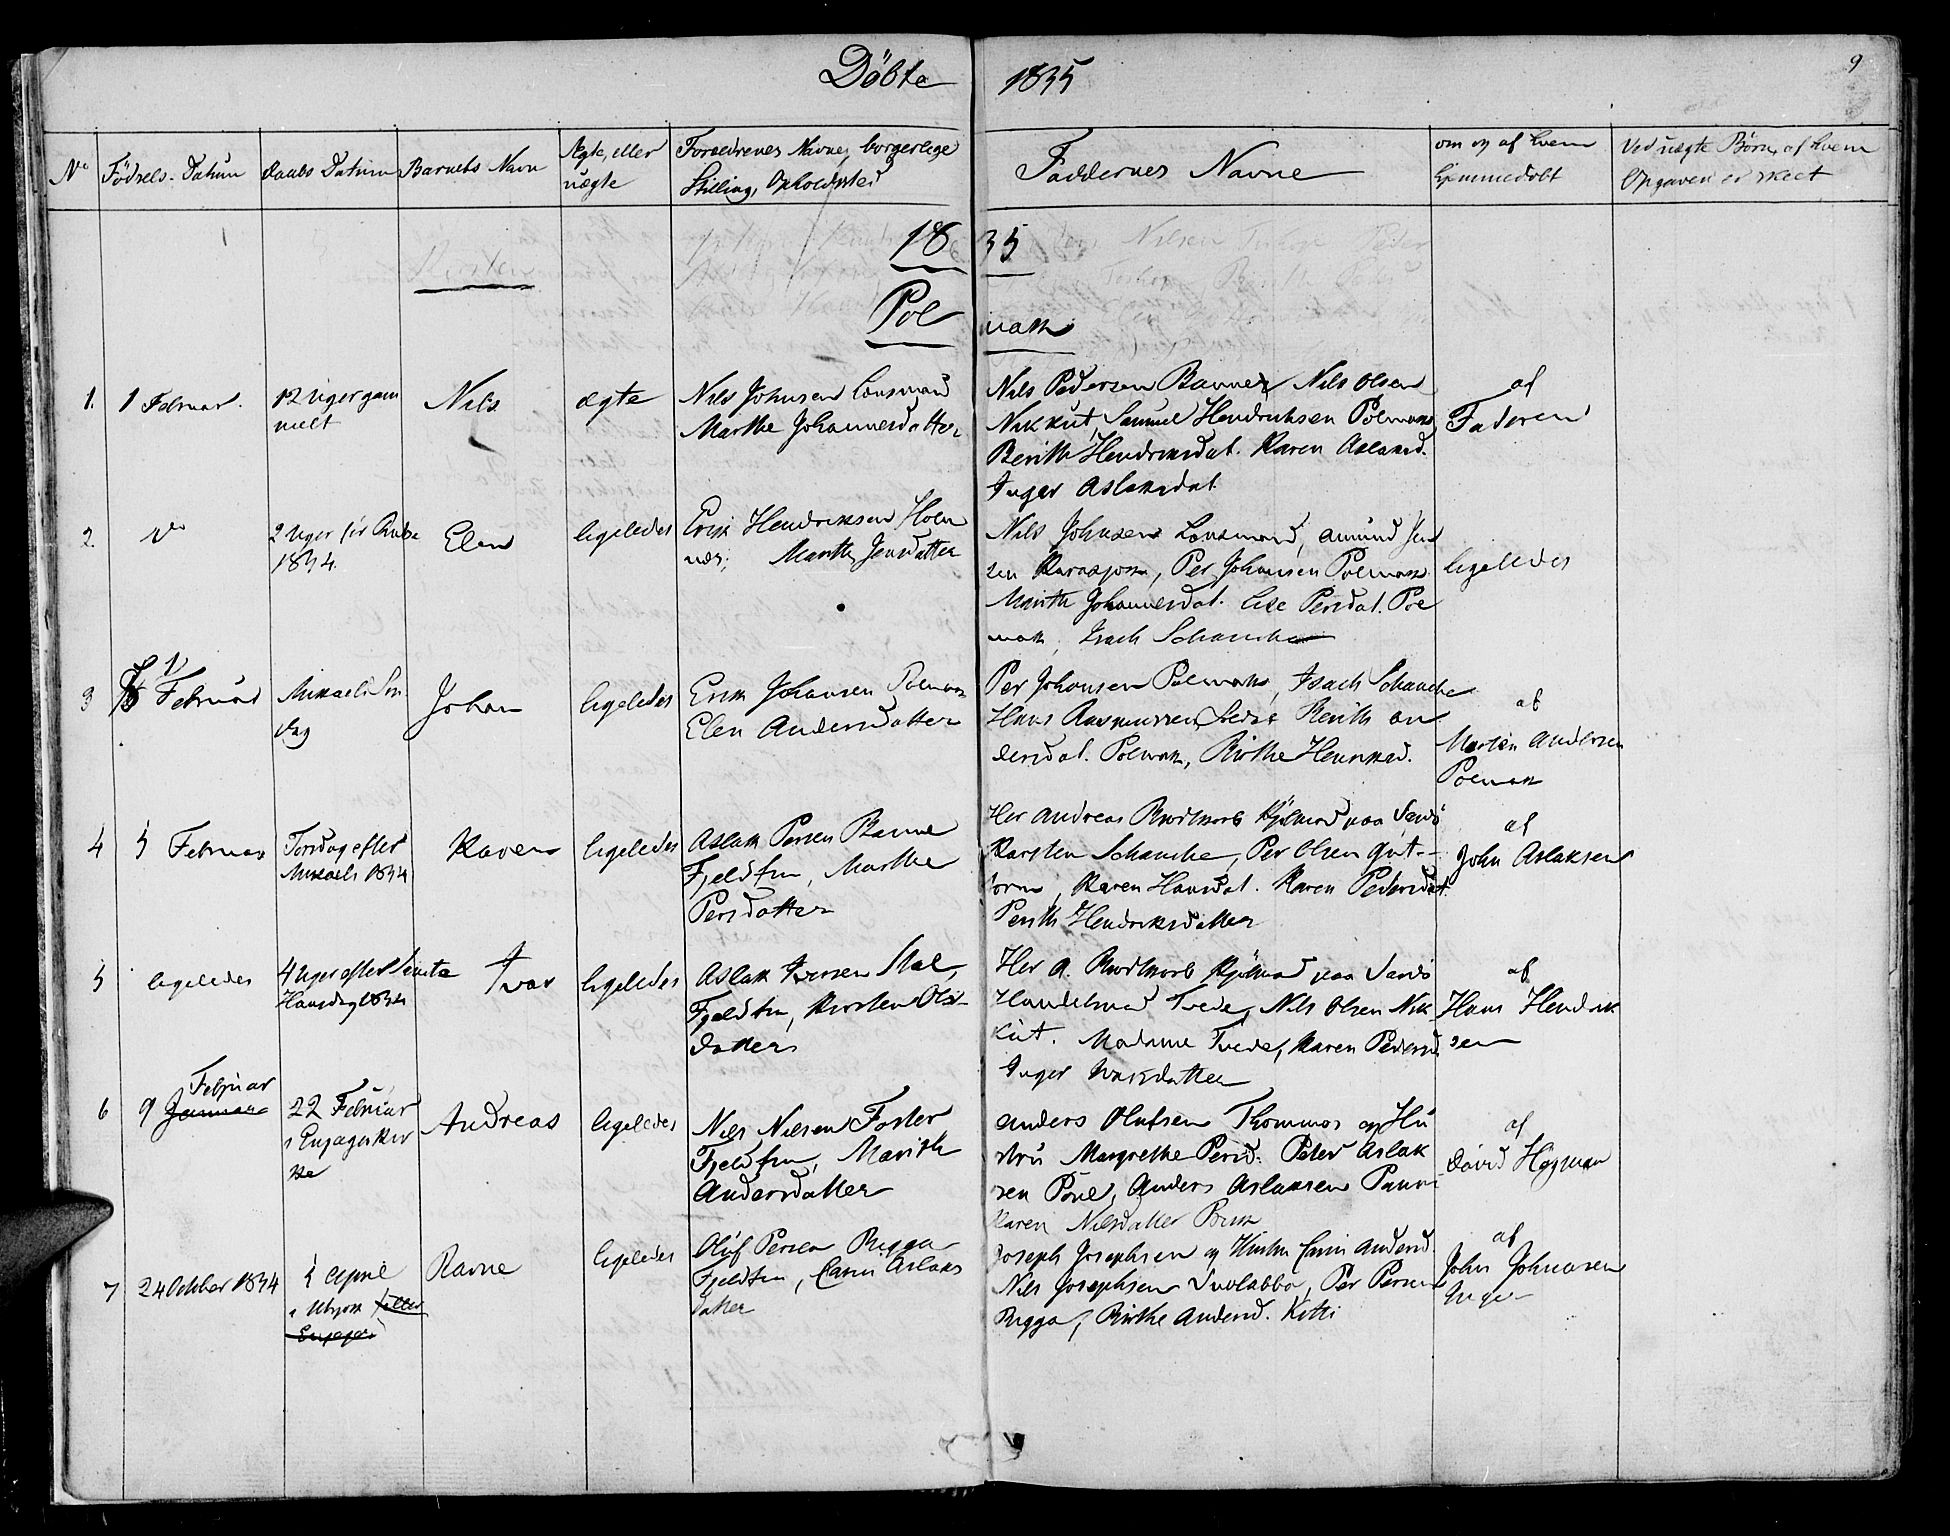 Döbte 1835
9
No
Födsels-Datum
Daabs Datum
Barnets Navn
Ægte, eller
uægte
Forældrenes Navne, borgerlige
Stilling, Opholdssted
Faddernes Navne
om og af hvem
hjemmedøbt
Ved uægte Børn, af hvem
Opgaven er skeet
1835
Polmak
1.
1 Februar.
12 Uger gam
melt
Nils
ægte
Nils Johnsen Lensmand
Marthe Johannesdatter
Nils Pedersen Banne, Nils Olsen
Nikkut, Samuel Hendriksen Polmak,
Berith Hendriksdat. Karen Aslaksd.
Inger Aslaksdat.
af
Faderen
2.
do
2 Uger før
1834.
Elen
ligeledes
Erik Hendriksen Holm
nes, Marith Jensdatter
Nils Johnsen Lensmand, Amund Jen
sen Karasjok, Per Johansen Polmak
Marith Johannesdat. Lise Persdat. Pol
mak, Isach Schanche
ligeledes
3
Februar
Mikaeli Søn
dag
Johan
ligeledes
Erik Johansen Polmak
Elen Andersdatter
Per Johansen Polmak, Isach Schanche
Hans Rasmussen, Berith An
dersdat. Polmak, Birthe Henriksd.
af
Morten Andersen
Polmak
4
5 Februar
Torsdag efter
Mikaeli 1834
Karen
ligeledes
Aslak Persen Banne
Fjeldfin, Marthe
Persdatter
Her Andreas Brodtkorb Kjøbmd paa Vardö
Karsten Schanche, Per Olsen Gut-
torm, Karen Hansdat. Karen Pedersdat.
Berith Hendriksdatter
af
John Aslaksen
5
ligeledes
4 Uger efter Sancte
Hansdag 1834
Ivar
ligeledes
Aslak Iversen
Fjeldfin, Kirsten Ols-
datter
Her A. Brodtkorb Kjøbmd paa Vardö
Handelsmd Tvede, Nils Olsen Nik
kut. Madame Tvede, Karen Pedersd.
Inger
af
Hans Hendrik
sen
6
Februar
9 Januar
22 Februar
i Enagers Kir
ke
Andreas
ligeledes
Nils Nilsen Forter
Fjeldfin, Marith
Andersdatter
Anders Olufsen Thommas og Hu
stru Margrethe Persd. Peter Aslak
sen Poue, Anders Aslaksen
Karen Nilsdatter
af
David Hagman
7
24 October 1834
April
i Utsjok eller
Enager
Ravne
ligeledes
Oluf Persen Rigga
Fjeldfin, Carin Aslaks
datter
Joseph Josephsen og Hustru Carin Andersd.
Nils Josephsen Per Persen
Rigga, Birthe Andersd. Kitti
af
John Johnasen